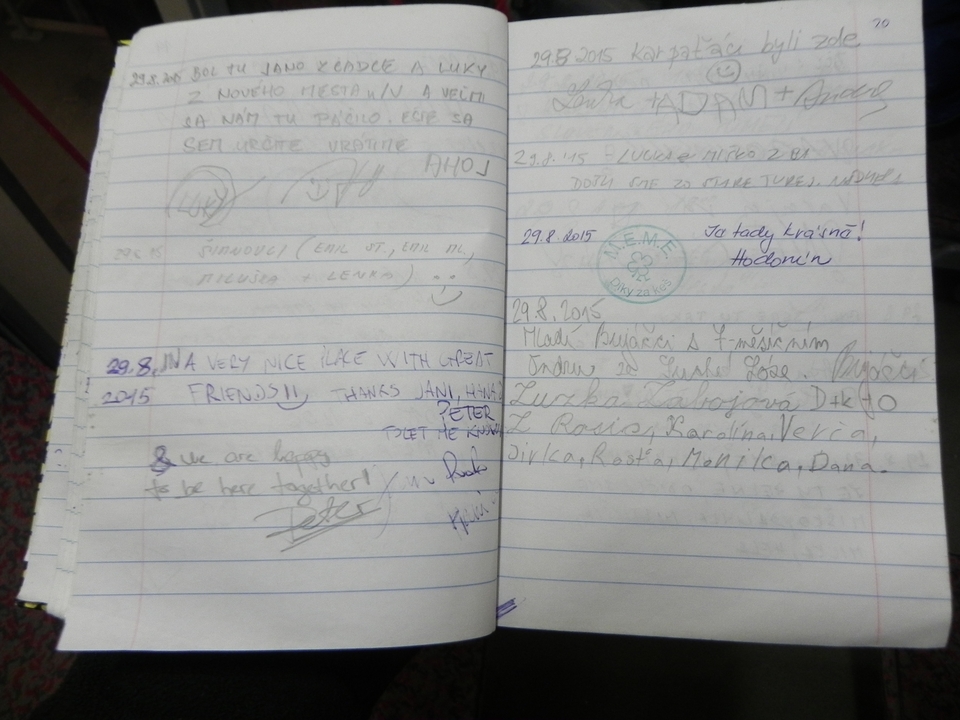 29.8.2015 BOL TU JANO Z ČADCE A LUKY
Z NOVÉHO MESTA n/V A VEĽMI
SA NÁM TU PÁČILO. EŠTE SA
SEM URČITE VRÁTIME
AHOJ
LUKY
ŠIMNOVCI (EMIL ST., EMIL ML.,
MILUŠKA + LENKA)
29.8. IN A VERY NICE PLACE WITH GREAT
2015 FRIENDS!! THANKS JANI, HANA
PETER
TO LET ME KNOW
& we are happy
to be here together!
Peter
20
29.8 2015 Karpaťáci byli zde
+ ADAM +
29.8.'15 - MIŠKO Z BA
DOŠLI SME ZO STAREJ TUREJ.
29.8.2015 Je tady krásně!
Hodonín
M.E.M.E.
Díky za keš
29.8.2015
Mladí Bujáčci s 7-měsíčním
Bujáčci
Zuzka Zabojová D+k
Z Karolína, Verča,
Jirka, Rosťa, Monika, Dana.